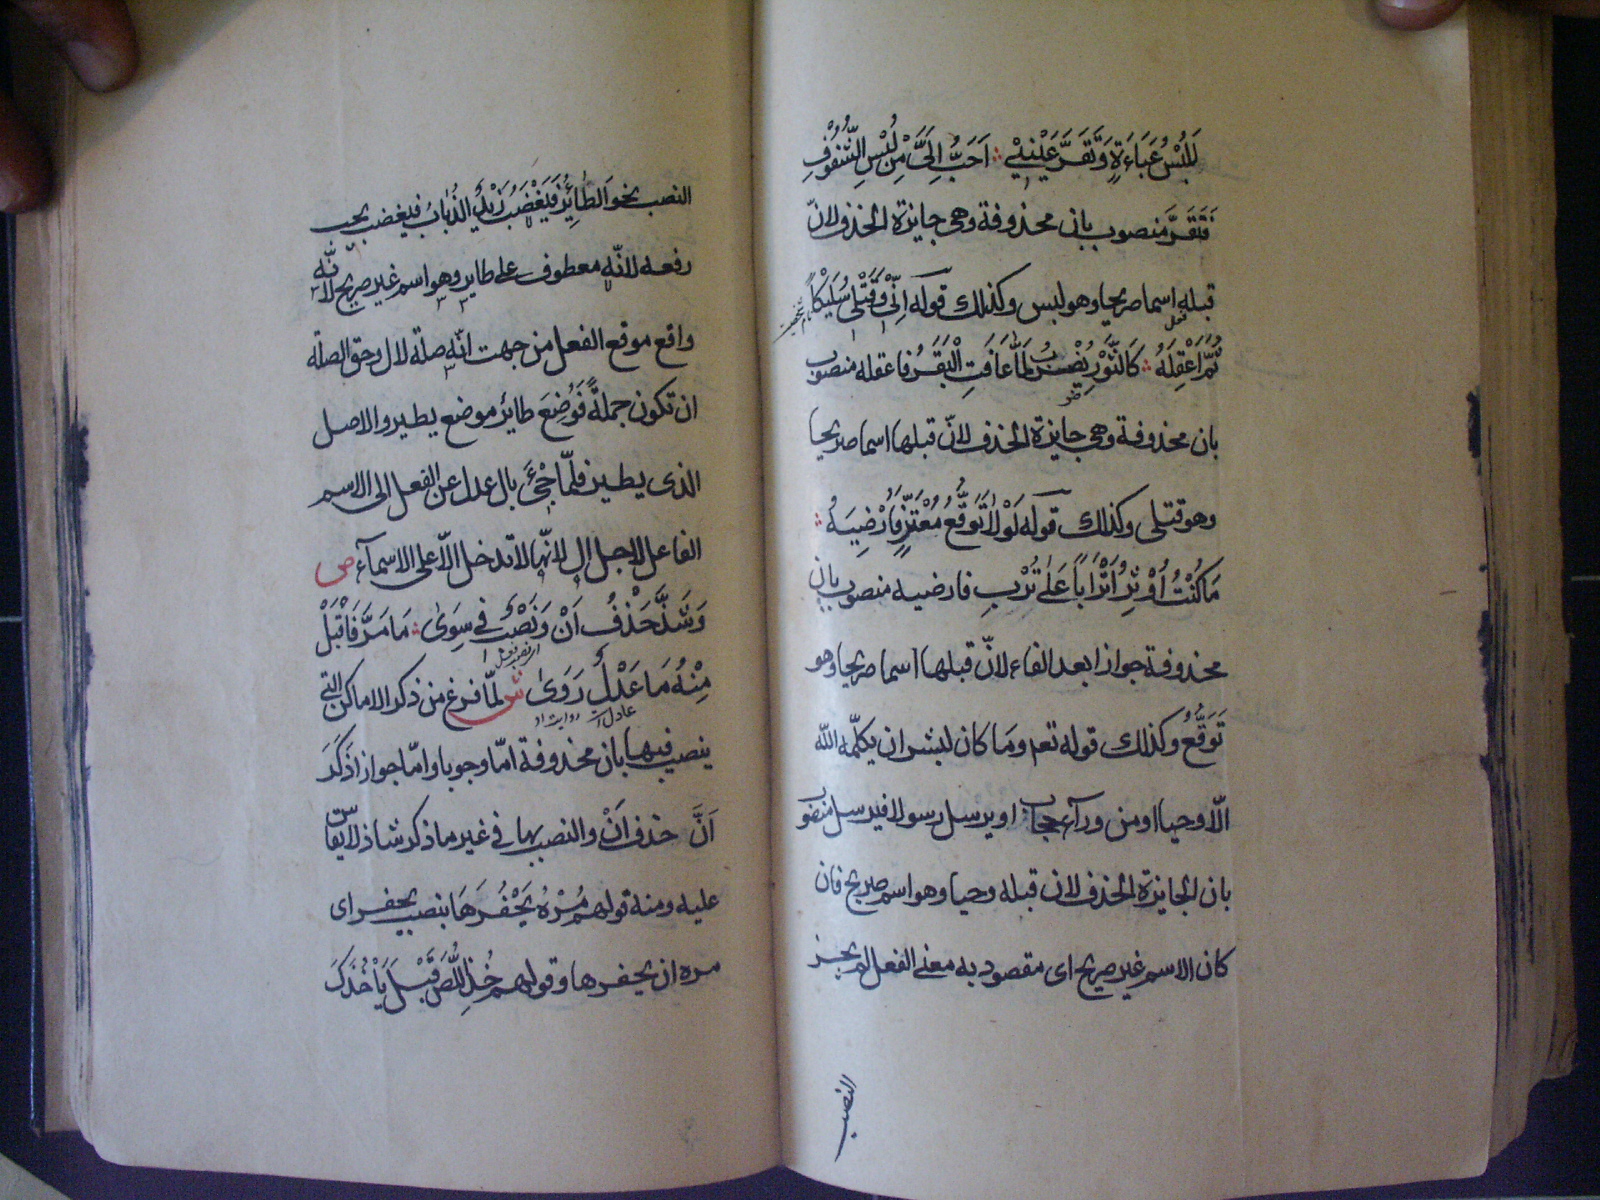 لَلُبْسُ عَبَاءَةٍ وَتَقَرَّ عَيْنِيْ ؞ اَحَبُّ اِلَىَّ مِنْ لُبْسِ الشُّفُوْفِ
فَتَقَرَّ منصوب بان محذوفة وهى جايزة الحذف لانّ
قبله اسما صريحا وهو لبس وكذلك قوله اِنِّىْ وَقَتْلِىْ سُلَيْكًا
ثُمَّ اَعْقِلَهُ ؞ كَالثَّوْرِ يُضْرَبُ لَمَّا عَافَتِ الْبَقَرُ فاعقله منصوب
بان محذوفة وهى جايزة الحذف لانّ قبلها اسما صريحا
وهو قتلى وكذلك قوله لَوْلَا تَوَقُّعُ مُعْتَرٍّ فَاُرْضِيَهُ ؞
مَا كُنْتُ اُوْثِرُ اَتْرَابًا عَلٰى تُرْبِ فارضيه منصوب بان
محذوفة جوازا بعد الفاء لانّ قبلها اسما صريحا وهو
تَوَقُّعُ وكذلك قوله تعم وما كان لبشر ان يكلّمه اللّه
الّا وحيا او من ورآء حجاب او يرسل رسولا فيرسل منصوب
بان الجايزة الحذف لان قبله وحيا وهو اسم صريح فان
كان الاسم غير صريح اى مقصود به معنى الفعل لم يجز
النصب
النصب نحو اَلطَّائِرُ فَيَغْضَبُ زَيْدٌ الذُّبَابُ فيغضب يجب
رفعه لانّه معطوف على طاير وهو اسم غير صريح لانّه
واقع موقع الفعل من جهت انّه صلة لال وحق الصلة
ان تكون جملةً فَوُضِعَ طاير موضع يطير والاصل
الذى يطير فلمّا جِئَ بال عدل عن الفعل الى الاسم
الفاعل لاجل ال لانّها لا تدخل الّا على الاسمآء ص
وَشَذَّ حَذْفُ اَنْ وَنَصْبٌ فِى سِوٰى ؞ مَا مَرَّ فَاقْبَلْ
مِنْهُ مَا عَدْلٌ رَوٰى ش لمّا فرغ من ذكر الاماكن التى
عادل است
ينصب فيها بان محذوفة امّا وجوبا وامّا جوازا ذَكَرَ
اَنَّ حذف اَنْ والنصب بها فى غير ما ذكر شاذ لا يقاس
عليه ومنه قولهم مُرْهُ يَحْفُرَهَا بنصب يحفر اى
مره ان يحفرها وقولهم خُذِ اللِّصَّ قَبْلَ يَأْخُذَكَ